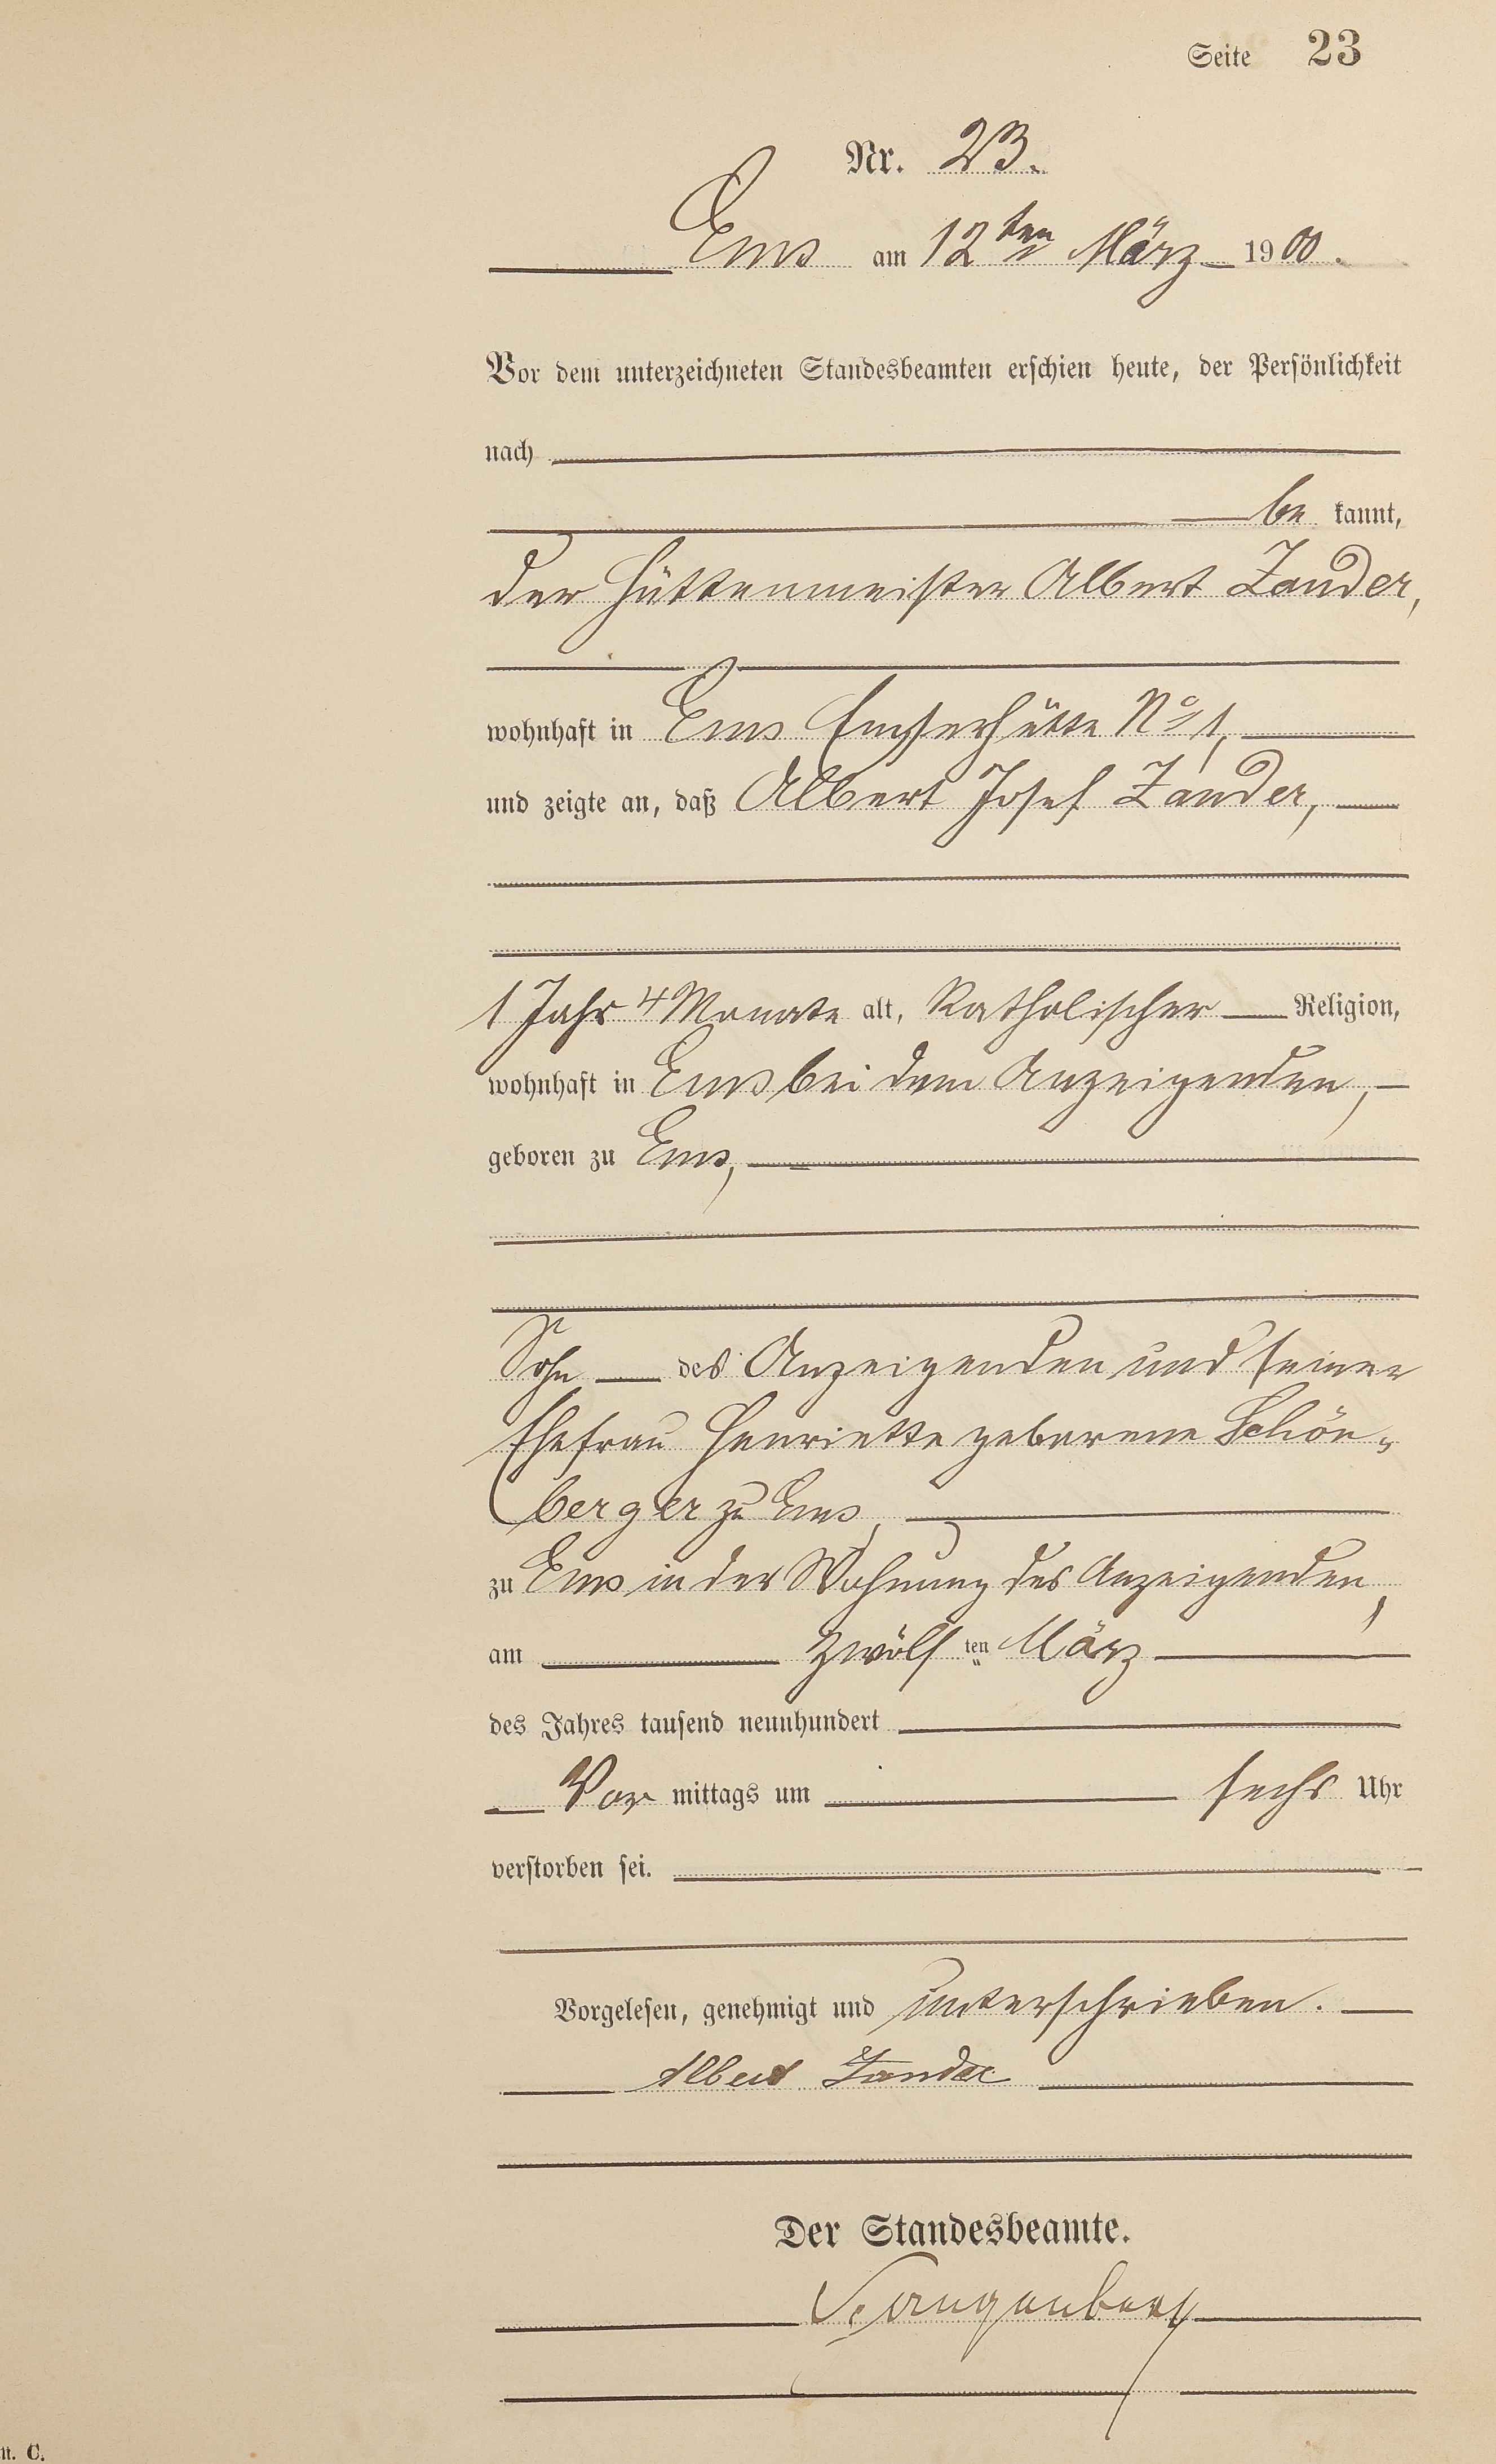 Seite 23
Nr. 23.
Ems am 12ten März 1900.
Vor dem unterzeichneten Standesbeamten erschien heute, der Persönlichkeit
nach
be kannt,
der Hüttenmeister Albert Zander,
wohnhaft in Ems Emserhütte No 1,
und zeigte an, daß Albert Josef Zander,
1 Jahr 4 Monate alt, Katholischer Religion,
wohnhaft in Ems bei dem Anzeigenden,
geboren zu Ems,
Sohn des Anzeigenden und seiner
Ehefrau Henriette geborene Schön-
berger zu Ems,
zu Ems in der Wohnung des Anzeigenden,
am zwölf ten März
des Jahres tausend neunhundert
Vor mittags um sechs Uhr
verstorben sei.
Vorgelesen, genehmigt und unterschrieben.
Albert Zander
Der Standesbeamte.
C.